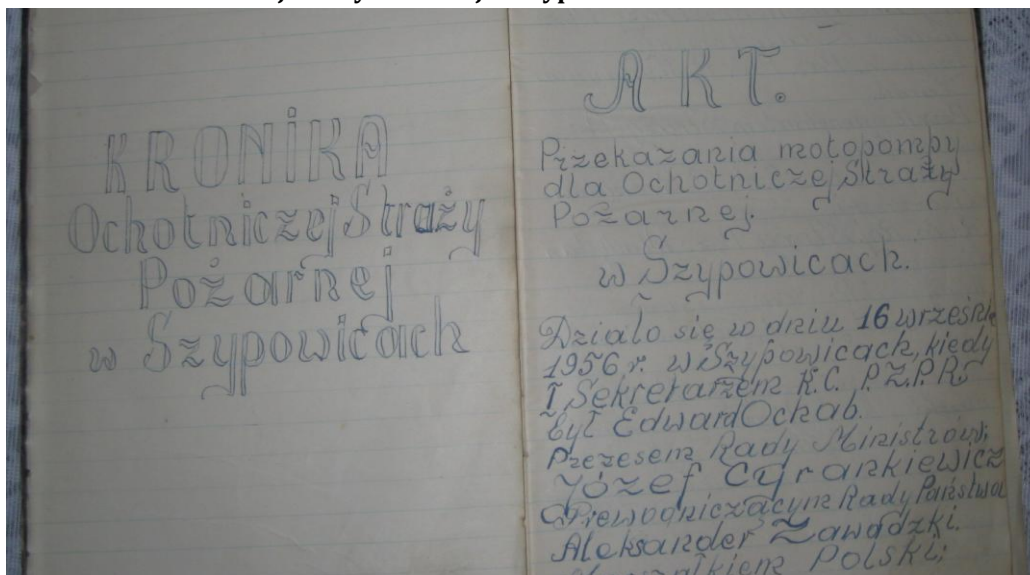 KRONIKA
Ochotniczej Straży
Pożarnej
w Szypowicach
AKT.
Przekazania motopompy
dla Ochotniczej Straży
Pożarnej.
w Szypowicach.
Działo się w dniu 16 wrześni
1956 r. w Szypowicach, kiedy
I Sekretarzem K.C. P.Z.P.R.
był Edward Ochab.
Prezesem Rady Ministrów;
Józef Cyrankiewicz
Przewodniczącym Rady Państwa
Aleksander Zawadzki.
Polski;